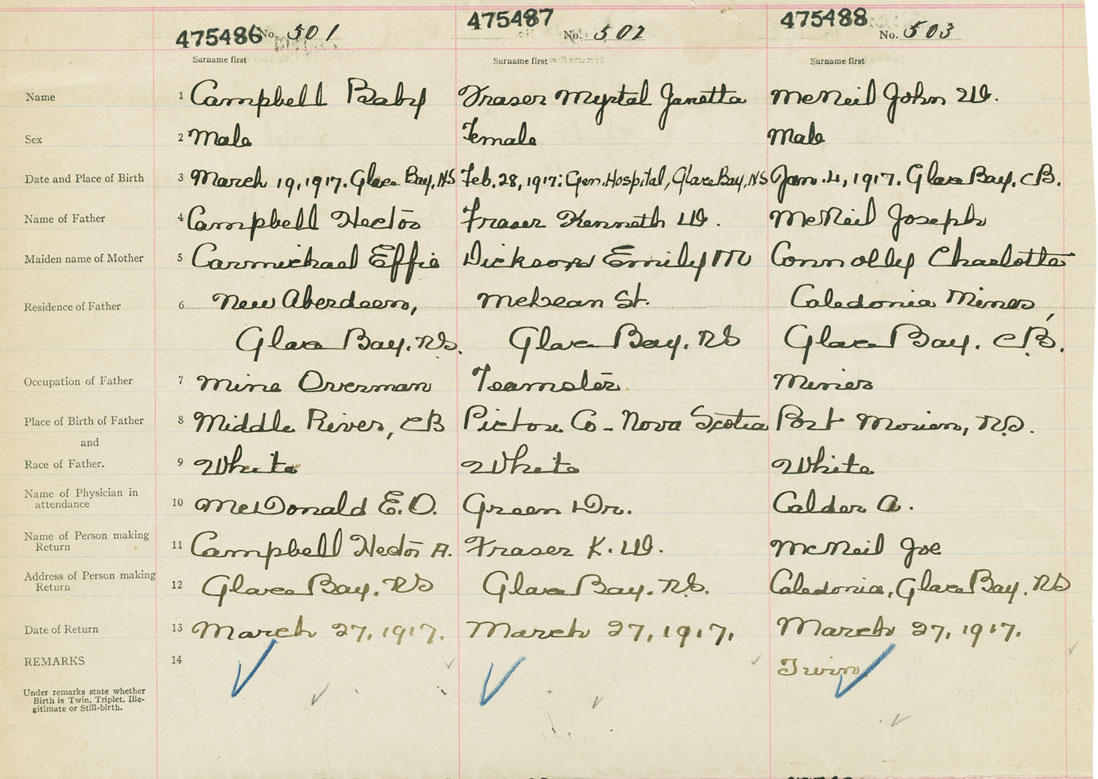 475486 No. 501 475487 No. 502 475488 No. 503
Surname first Surname first Surname first
Name 1 Campbell Baby Fraser Myrtal Janetta McNeil John W.
Sex 2 Male Female Male
Date and Place of Birth 3 March 19, 1917. Glace Bay, NS Feb. 28, 1917: Gen. Hospital, Glace Bay, NS Jan. 4, 1917. Glace Bay, CB.
Name of Father 4 Campbell Hector Fraser Kenneth W. McNeil Joseph
Maiden name of Mother 5 Carmichael Effie Dickson Emily M Connolly Charlotte
Residence of Father 6 New Aberdeen, McLean St. Caledonia Mines,
Glace Bay, NS. Glace Bay, NS Glace Bay, CB.
Occupation of Father 7 Mine Overman Teamster. Miner
Place of Birth of Father 8 Middle River, CB Pictou Co - Nova Scotia Port Morien, N.S.
and
Race of Father. 9 White White White
Name of Physician in
attendance 10 McDonald E.O. Green Dr. Calder A.
Name of Person making
Return 11 Campbell Hector A. Fraser K. W. McNeil Joe
Address of Person making
Return 12 Glace Bay, NS Glace Bay, N.S. Caledonia, Glace Bay, NS
Date of Return 13 March 27, 1917. March 27, 1917. March 27, 1917.
REMARKS 14 Twin
Under remarks state whether
Birth is Twin, Triplet, Ille-
gitimate or Still-birth.